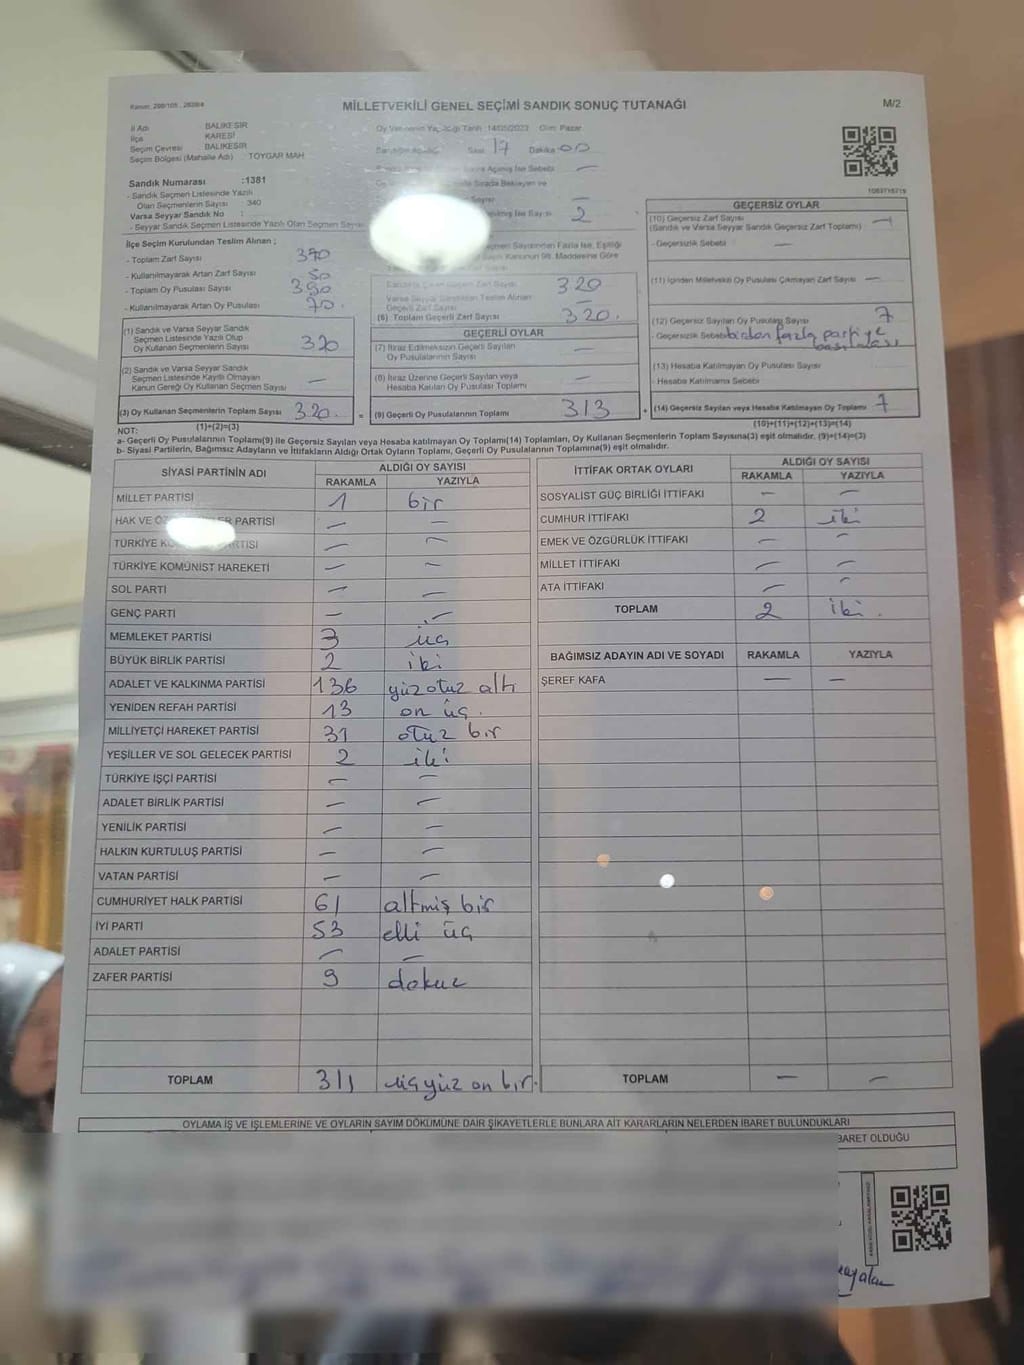 MİLLETVEKİLİ GENEL SEÇİMİ SANDIK SONUÇ TUTANAĞI
M/2
İl Adı : BALIKESİR
İlçe : KARESİ
Seçim Çevresi : BALIKESİR
Seçim Bölgesi (Mahalle Adı) : TOYGAR MAH.
Sandık Numarası :1381
- Sandık Seçmen Listesinde Yazılı
Olan Seçmenlerin Sayısı : 340
Varsa Seyyar Sandık No :
- Seyyar Sandık Seçmen Listesinde Yazılı Olan Seçmen
Oy Vermenin Yapıldığı Tarih :14/05/2023 Gün: Pazar
Saat 17 Dakika 00
Açılmış İse Sebebi —
Sırada Bekleyen ve
2
İlçe Seçim Kurulundan Teslim Alınan ;
- Toplam Zarf Sayısı
- Kullanılmayarak Artan Zarf Sayısı 50
- Toplam Oy Pusulası Sayısı 390
- Kullanılmayarak Artan Oy Pusulası 70.
(1) Sandık ve Varsa Seyyar Sandık
Seçmen Listesinde Yazılı Olup
Oy Kullanan Seçmenlerin Sayısı 320
(2) Sandık ve Varsa Seyyar Sandık
Seçmen Listesinde Kayıtlı Olmayan
Kanun Gereği Oy Kullanan Seçmen Sayısı —
(3) Oy Kullanan Seçmenlerin Toplam Sayısı 320.
(1)+(2)=(3)
Sayısından Fazla İse, Eşitliği
Kanunun 98. Maddesine Göre
320
Varsa Seyyar Sandıktan Teslim Alınan
Geçerli Zarf Sayısı —
(6) Toplam Geçerli Zarf Sayısı 320.
GEÇERLİ OYLAR
(7) İtiraz Edilmeksizin Geçerli Sayılan
Oy Pusulalarının Sayısı —
(8) İtiraz Üzerine Geçerli Sayılan veya
Hesaba Katılan Oy Pusulaları Toplamı —
= (9) Geçerli Oy Pusulalarının Toplamı 313
GEÇERSİZ OYLAR
(10) Geçersiz Zarf Sayısı
(Sandık ve Varsa Seyyar Sandık Geçersiz Zarf Toplamı) —
- Geçersizlik Sebebi —
(11) İçinden Milletvekili Oy Pusulası Çıkmayan Zarf Sayısı —
(12) Geçersiz Sayılan Oy Pusulası Sayısı 7
- Geçersizlik Sebebi birden fazla partiye
basılması
(13) Hesaba Katılmayan Oy Pusulası Sayısı
- Hesaba Katılmama Sebebi
+ (14) Geçersiz Sayılan veya Hesaba Katılmayan Oy Toplamı 7
(10)+(11)+(12)+(13)=(14)
NOT:
a- Geçerli Oy Pusulalarının Toplamı(9) ile Geçersiz Sayılan veya Hesaba katılmayan Oy Toplamı(14) Toplamları, Oy Kullanan Seçmenlerin Toplam Sayısına(3) eşit olmalıdır. (9)+(14)=(3)
b- Siyasi Partilerin, Bağımsız Adayların ve İttifakların Aldığı Ortak Oyların Toplamı, Geçerli Oy Pusulalarının Toplamına(9) eşit olmalıdır.
SİYASİ PARTİNİN ADI ALDIĞI OY SAYISI
RAKAMLA YAZIYLA
MİLLET PARTİSİ 1 bir
HAK VE PARTİSİ — —
TÜRKİYE — —
TÜRKİYE KOMÜNİST HAREKETİ — —
SOL PARTİ — —
GENÇ PARTİ — —
MEMLEKET PARTİSİ 3 üç
BÜYÜK BİRLİK PARTİSİ 2 iki
ADALET VE KALKINMA PARTİSİ 136 yüz otuz altı
YENİDEN REFAH PARTİSİ 13 on üç.
MİLLİYETÇİ HAREKET PARTİSİ 31 otuz bir
YEŞİLLER VE SOL GELECEK PARTİSİ 2 iki
TÜRKİYE İŞÇİ PARTİSİ — —
ADALET BİRLİK PARTİSİ — —
YENİLİK PARTİSİ — —
HALKIN KURTULUŞ PARTİSİ — —
VATAN PARTİSİ — —
CUMHURİYET HALK PARTİSİ 61 altmış bir
İYİ PARTİ 53 elli üç
ADALET PARTİSİ — —
ZAFER PARTİSİ 9 dokuz
TOPLAM 311 üçyüz on bir.
İTTİFAK ORTAK OYLARI ALDIĞI OY SAYISI
RAKAMLA YAZIYLA
SOSYALİST GÜÇ BİRLİĞİ İTTİFAKI — —
CUMHUR İTTİFAKI 2 iki
EMEK VE ÖZGÜRLÜK İTTİFAKI — —
MİLLET İTTİFAKI — —
ATA İTTİFAKI — —
TOPLAM 2 iki.
BAĞIMSIZ ADAYIN ADI VE SOYADI RAKAMLA YAZIYLA
ŞEREF KAFA — —
TOPLAM — —
OYLAMA İŞ VE İŞLEMLERİNE VE OYLARIN SAYIM DÖKÜMÜNE DAİR ŞİKAYETLERLE BUNLARA AİT KARARLARIN NELERDEN İBARET BULUNDUKLARI
BARET OLDUĞU